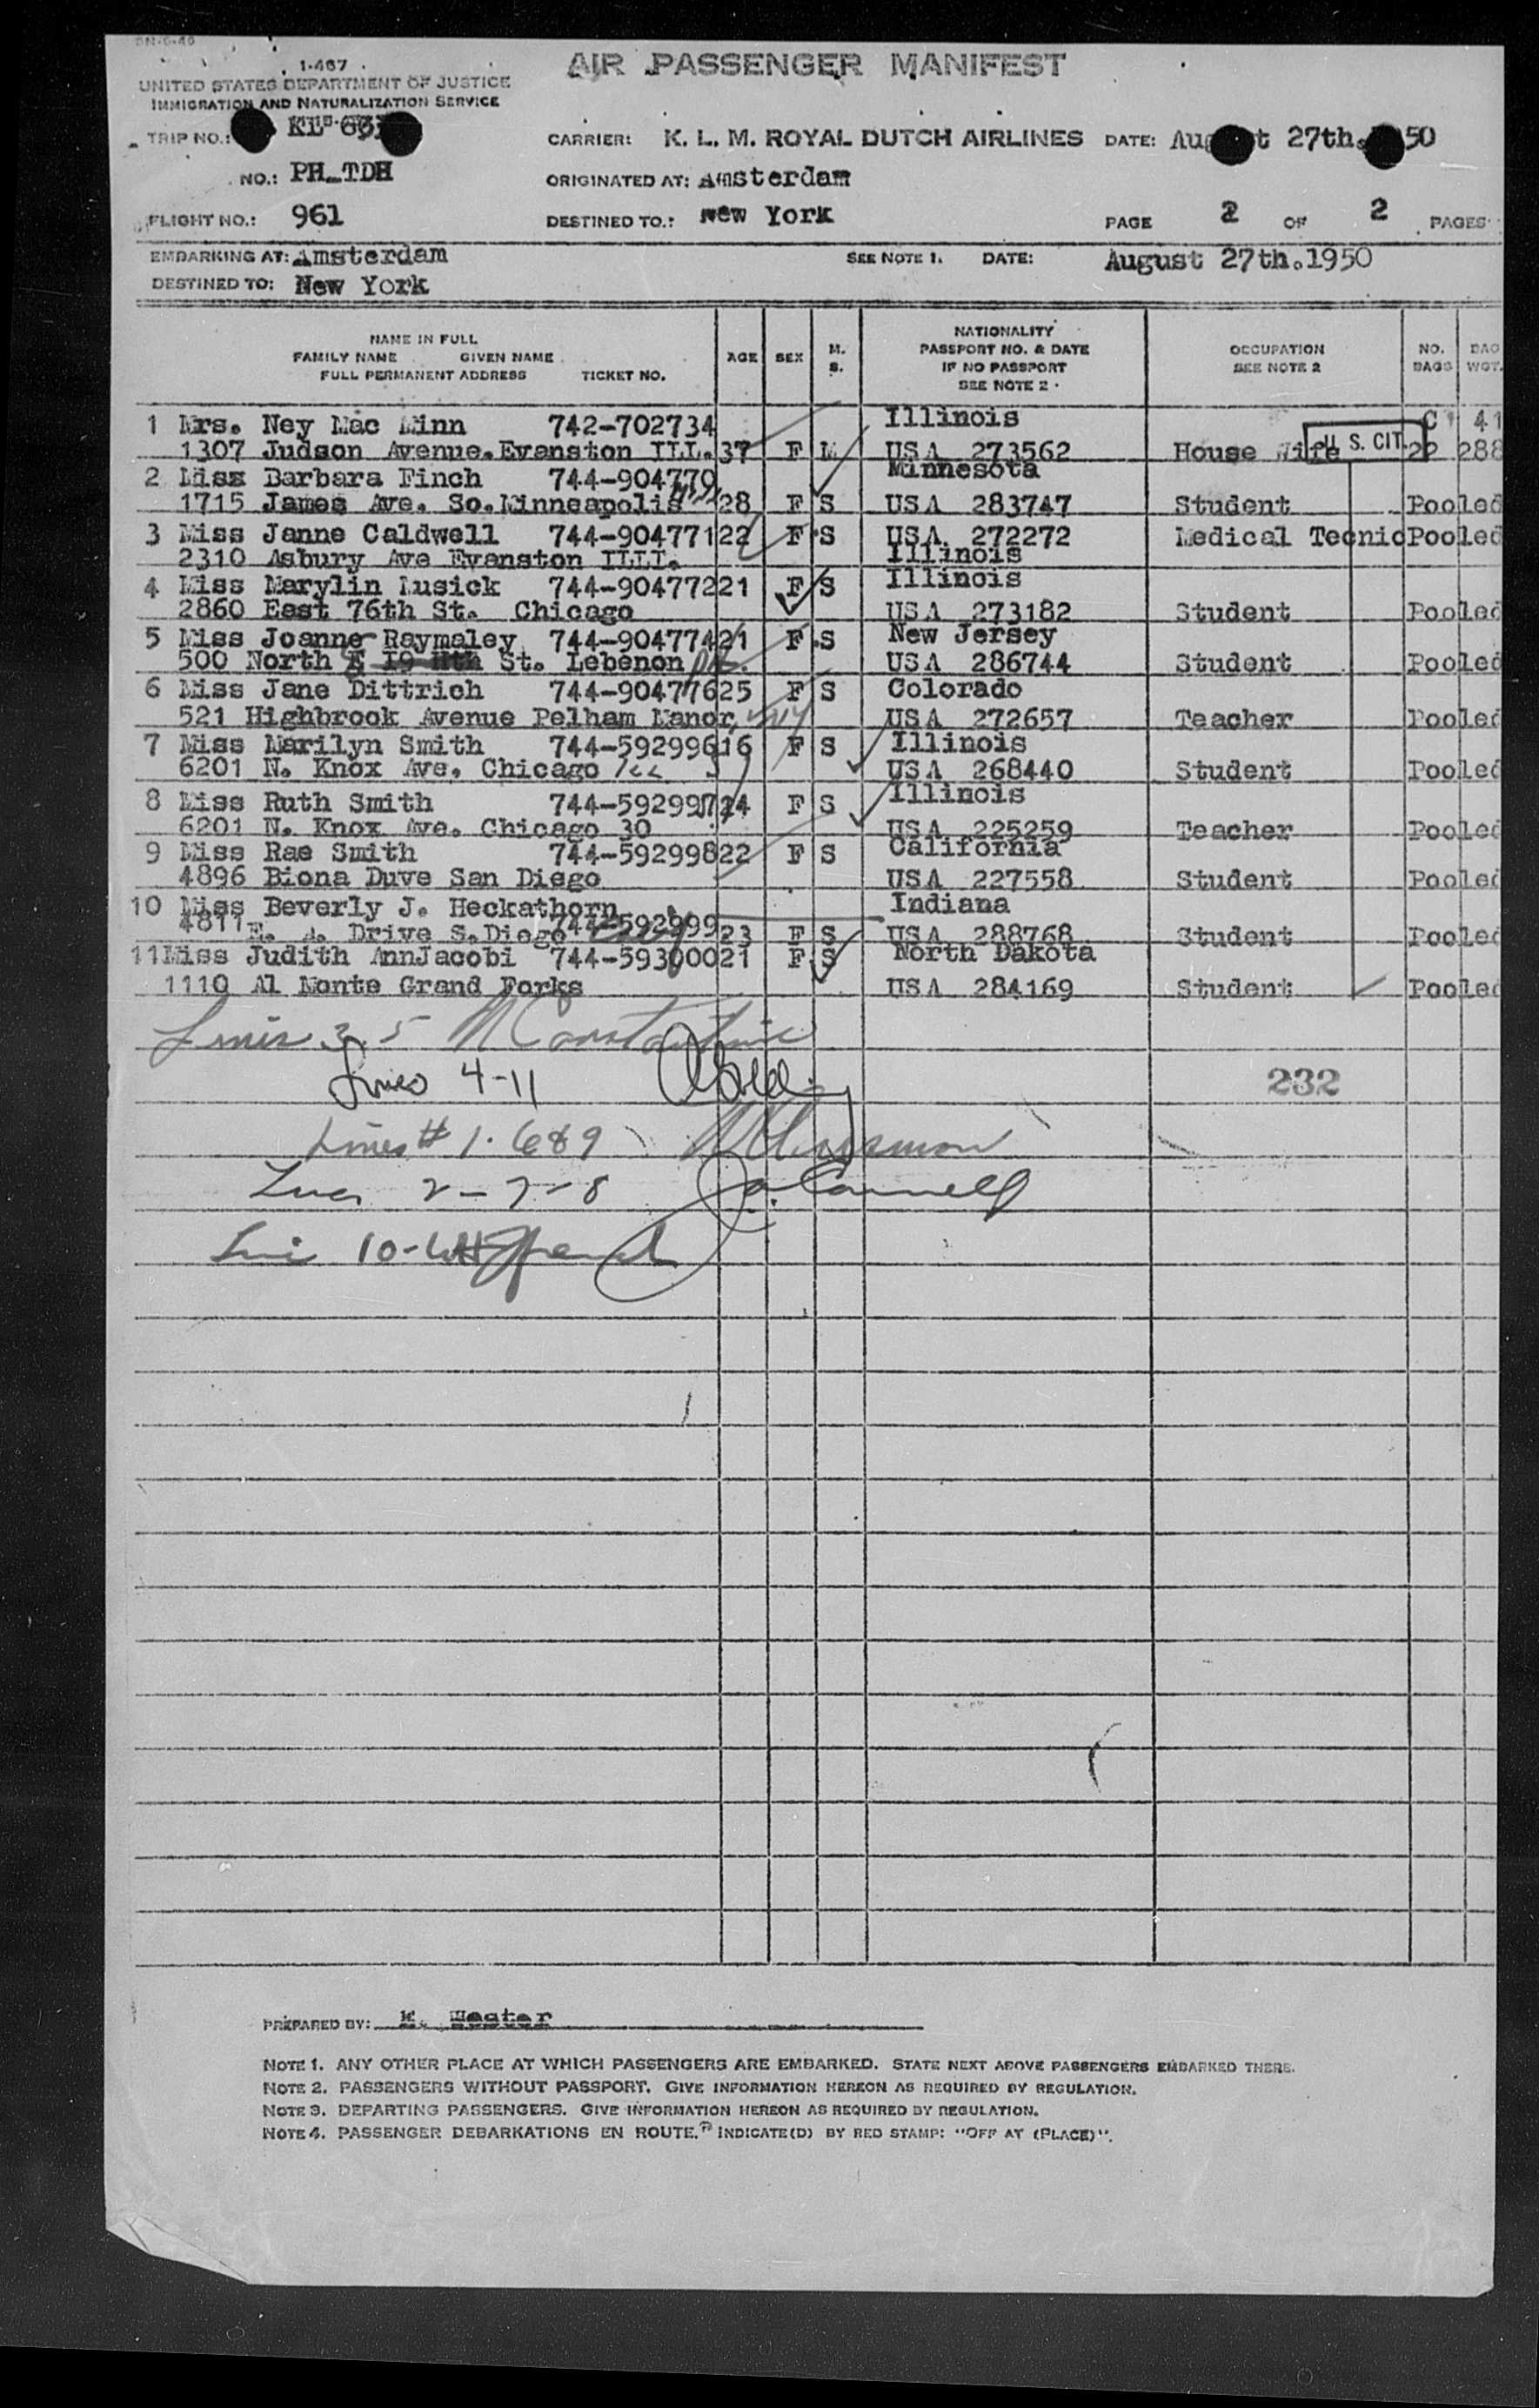 AIR PASSENGER MANIFEST
1-467
UNITED STATES DEPARTMENT OF JUSTICE
IMMIGRATION AND NATURALIZATION SERVICE
TRIP NO.: CARRIER: K. L. M. ROYAL DUTCH AIRLINES DATE: August 27th. 1950
NO.: PH-TDH ORIGINATED AT: Amsterdam
FLIGHT NO.: 961 DESTINED TO.: New York PAGE 2 OF 2 PAGES
EMBARKING AT: Amsterdam SEE NOTE 1. DATE: August 27th.1950
DESTINED TO: New York
NAME IN FULL
FAMILY NAME GIVEN NAME
FULL PERMANENT ADDRESS TICKET NO. AGE SEX M. S. NATIONALITY PASSPORT NO. & DATE IF NO PASSPORT SEE NOTE 2 OCCUPATION SEE NOTE 2 NO. BAGS BAG WGT.
1 Mrs. Ney Mac Minn 742-702734 Illinois C 41
1307 Judson Avenue.Evanston ILL. 37 F M USA 273562 House Wife U S. CIT. 22 288
2 Miss Barbara Finch 744-904770 Minnesota
1715 James Ave. So.Minneapolis 28 F S USA 283747 Student Pooled
3 Miss Janne Caldwell 744-904771 22 F S USA 272272 Medical Tecnic Pooled
2310 Asbury Ave Evanston ILLI. Illinois
4 Miss Marylin Lusick 744-904772 21 F S Illinois
2860 East 76th St. Chicago USA 273182 Student Pooled
5 Miss Joanne Raymaley 744-904774 21 F S New Jersey
500 North St. Lebenon Pa. USA 286744 Student Pooled
6 Miss Jane Dittrich 744-904776 25 F S Colorado
521 Highbrook Avenue Pelham Manor, NY USA 272657 Teacher Pooled
7 Miss Marilyn Smith 744-592996 16 F S Illinois
6201 N. Knox Ave. Chicago Ill USA 268440 Student Pooled
8 Miss Ruth Smith 744-592997 24 F S Illinois
6201 N. Knox Ave. Chicago 30 USA 225259 Teacher Pooled
9 Miss Rae Smith 744-592998 22 F S California
4896 Biona Duve San Diego USA 227558 Student Pooled
10 Miss Beverly J. Heckathorn Indiana
4811 E. A. Drive S.Diego 744-592999 23 F S USA 288768 Student Pooled
11 Miss Judith AnnJacobi 744-593000 21 F S North Dakota
1110 Al Monte Grand Forks USA 284169 Student Pooled
Lines 3, 5 Constantine
Lines 4-11
232
Lines # 1. 6 & 9
Lines 2-7-8 O'Connell
Line 10
PREPARED BY: Wester
NOTE 1. ANY OTHER PLACE AT WHICH PASSENGERS ARE EMBARKED. STATE NEXT ABOVE PASSENGERS EMBARKED THERE.
NOTE 2. PASSENGERS WITHOUT PASSPORT. GIVE INFORMATION HEREON AS REQUIRED BY REGULATION.
NOTE 3. DEPARTING PASSENGERS. GIVE INFORMATION HEREON AS REQUIRED BY REGULATION.
NOTE 4. PASSENGER DEBARKATIONS EN ROUTE. INDICATE(D) BY RED STAMP: "OFF AT (PLACE)".